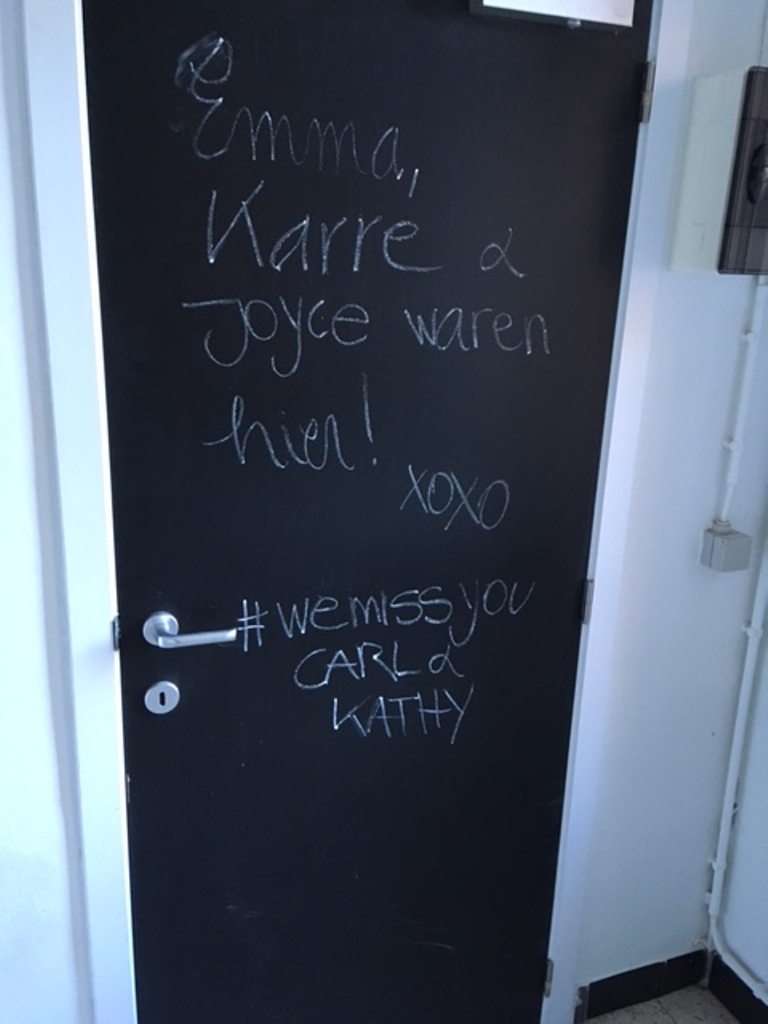 Emma,
Karre &
Joyce waren
hier!
xoxo
#wemissyou
CARL &
KATHY